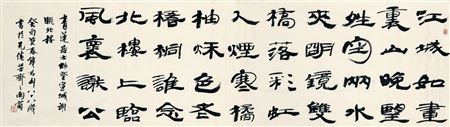 江城如畫
裏山晚望
晴空兩水
夾明鏡雙
橋落彩虹
人煙寒橘
柚秋色老
梧桐誰念
北樓上臨
風懷謝公
青蓮居士秋登宣城謝
朓北樓
癸酉
書於